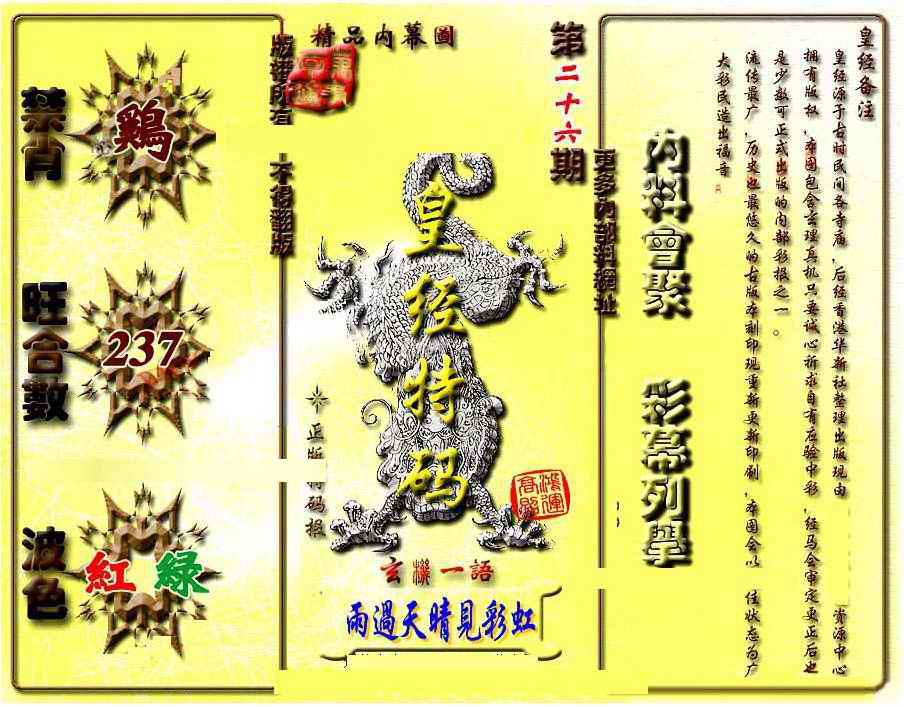 精品内幕圖
第二十六期
版權所有
不得翻版
禁肖
鷄
旺合數
237
波色
紅 綠
皇经特码
鴻運
高照
玄機一語
雨過天晴見彩虹
更多内部料網址
内料會聚
彩幕列舉
皇经备注
皇经源于古时民间各寺庙，后经香港华新社整理出版现由 资源中心
拥有版权，本图包含玄理真机只要诚心祈求自有应验中彩，经马会审定更正后也
是少数可正式出版的内部彩报之一。
流传最广，历史也最悠久的古版本刻印现重新更新印刷，本图会以 佳状态为广
大彩民造出福音